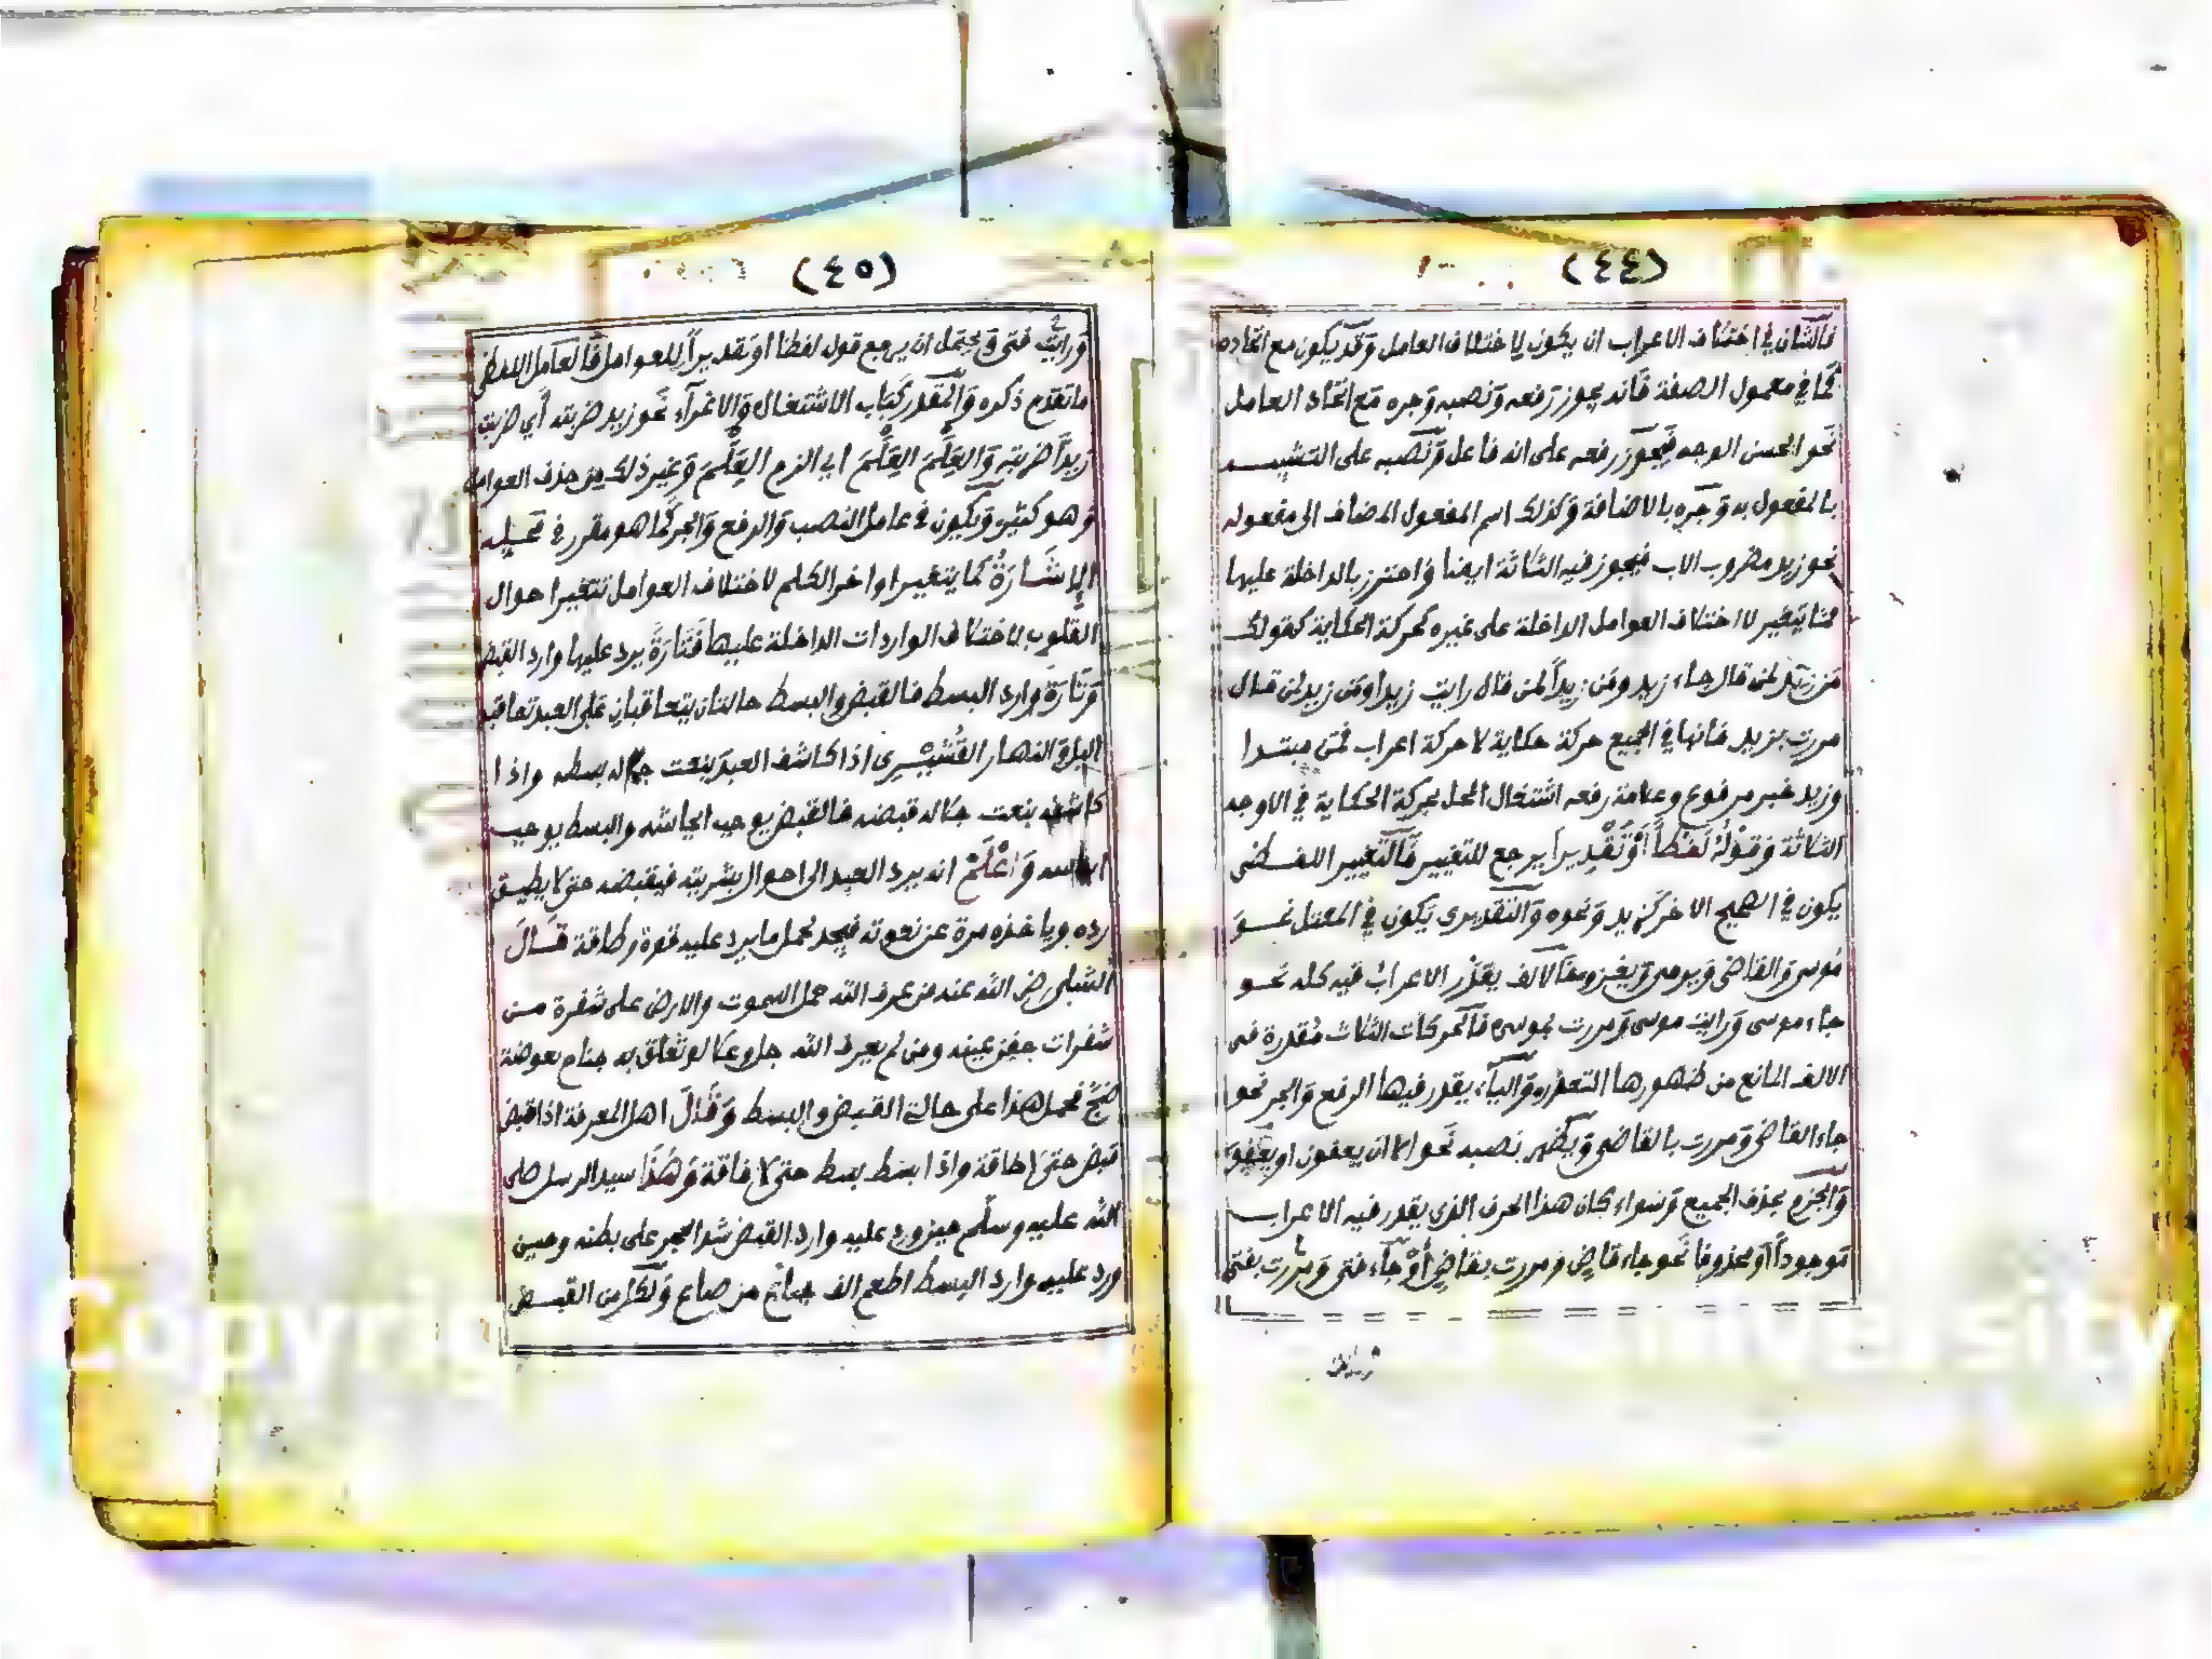 (٤٤)
فالشان في اختلاف الاعراب ان يكون لاختلاف العامل وقد يكون مع اتحاده
كما في معمول الصفة فانه يجوز رفعه ونصبه وجره مع اتحاد العامل
نحو الحسن الوجه فيجوز رفعه على انه فاعل ونصبه على التشبيه
بالمفعول به وجره بالاضافة وكذلك اسم المفعول المضاف الى مفعوله
نحو زيد مضروب الاب فيجوز فيه الثلاثة ايضا واحترز بالداخلة عليها
مما يتغير لا اختلاف العوامل الداخلة على غيره كحركة الحكاية كقولك
من زيد لمن قال جاء زيد ومن زيداً لمن قال رايت زيدا ومن زيد لمن قال
مررت بزيد فانها في الجميع حركة حكاية لا حركة اعراب فمن مبتدا
وزيد خبر مرفوع وعلامة رفعه اشتغال المحل بحركة الحكاية في الاوجه
الثلاثة وقوله لفظاً او تقديرا يرجع للتغيير فالتغيير اللفظي
يكون في الصحيح الاخر كزيد ونحوه والتقديري يكون في المعتل نحو
موسى والقاضي ويرمي ويغزو فالالف يقدر الاعراب فيه كله نحو
جاء موسى ورايت موسى ومررت بموسى فالحركات الثلاث مقدرة في
الالف المانع من ظهورها التعذر والياء يقدر فيها الرفع والجر نحو
جاء القاضي ومررت بالقاضي ويظهر نصبه نحو الا ان يعفون او يعفو
والجزم بحذف الجميع وسواء كان هذا الحرف الذي يقدر فيه الاعراب
موجوداً او محذوفا نحو جاء قاض ومررت بقاض او جاء فتى ومررت بفتى
ورايت
(٤٥)
ورايت فتى ويحتمل ان يرجع قول لفظا او تقديراً للعوامل فالعامل اللفظي
ما تقدم ذكره والمقدر كباب الاشتغال والاغراء نحو زيد ضربته أي ضربت
زيداً ضربته والعَلَمَ العَلَمَ اي الزم العَلَمَ وغير ذلك من حذف العوامل
وهو كثير ويكون في عامل النصب والرفع والجر كما هو مقرر في محله
الإشَارَةُ كما يتغير اواخر الكلم لاختلاف العوامل تتغير احوال
القلوب لاختلاف الواردات الداخلة عليها فتارةً يرد عليها وارد القبض
وتارة وارد البسط فالقبض والبسط حالتان يتعاقبان على العبد تعاقب
اليل والنهار القُشَيْرى اذا كاشف العبد بنعت جماله بسطه واذا
كاشفه بنعت جلاله قبضه فالقبض يوجب ايحاشه والبسط يوجب
وَاعْلَمْ انه يرد العبد الى احوال بشريته فيقبضه حتى لا يطيق
رده وياخذه مرة عن نعوته فيجد لحمل ما يرد عليه قوة وطاقة قَالَ
الشبلي رضي الله عنه من عرف الله حمل السموت والارض على شفرة من
شفرات جفن عينه ومن لم يعرف الله جل وعلا لو تعلق به جناح بعوضة
ضج فحمل هذا على حالة القبض والبسط وَقَالَ اهل المعرفة اذا قبض
قبض حتى لا طاقة واذا بسط بسط حتى لا فاقة وَهَذَا سيد الرسل صلى
الله عليه وسلّم حين ورد عليه وارد القبض شد الحجر على بطنه وحين
ورد عليه وارد البسط اطعم الف جائع من صاع ولكل من القبض